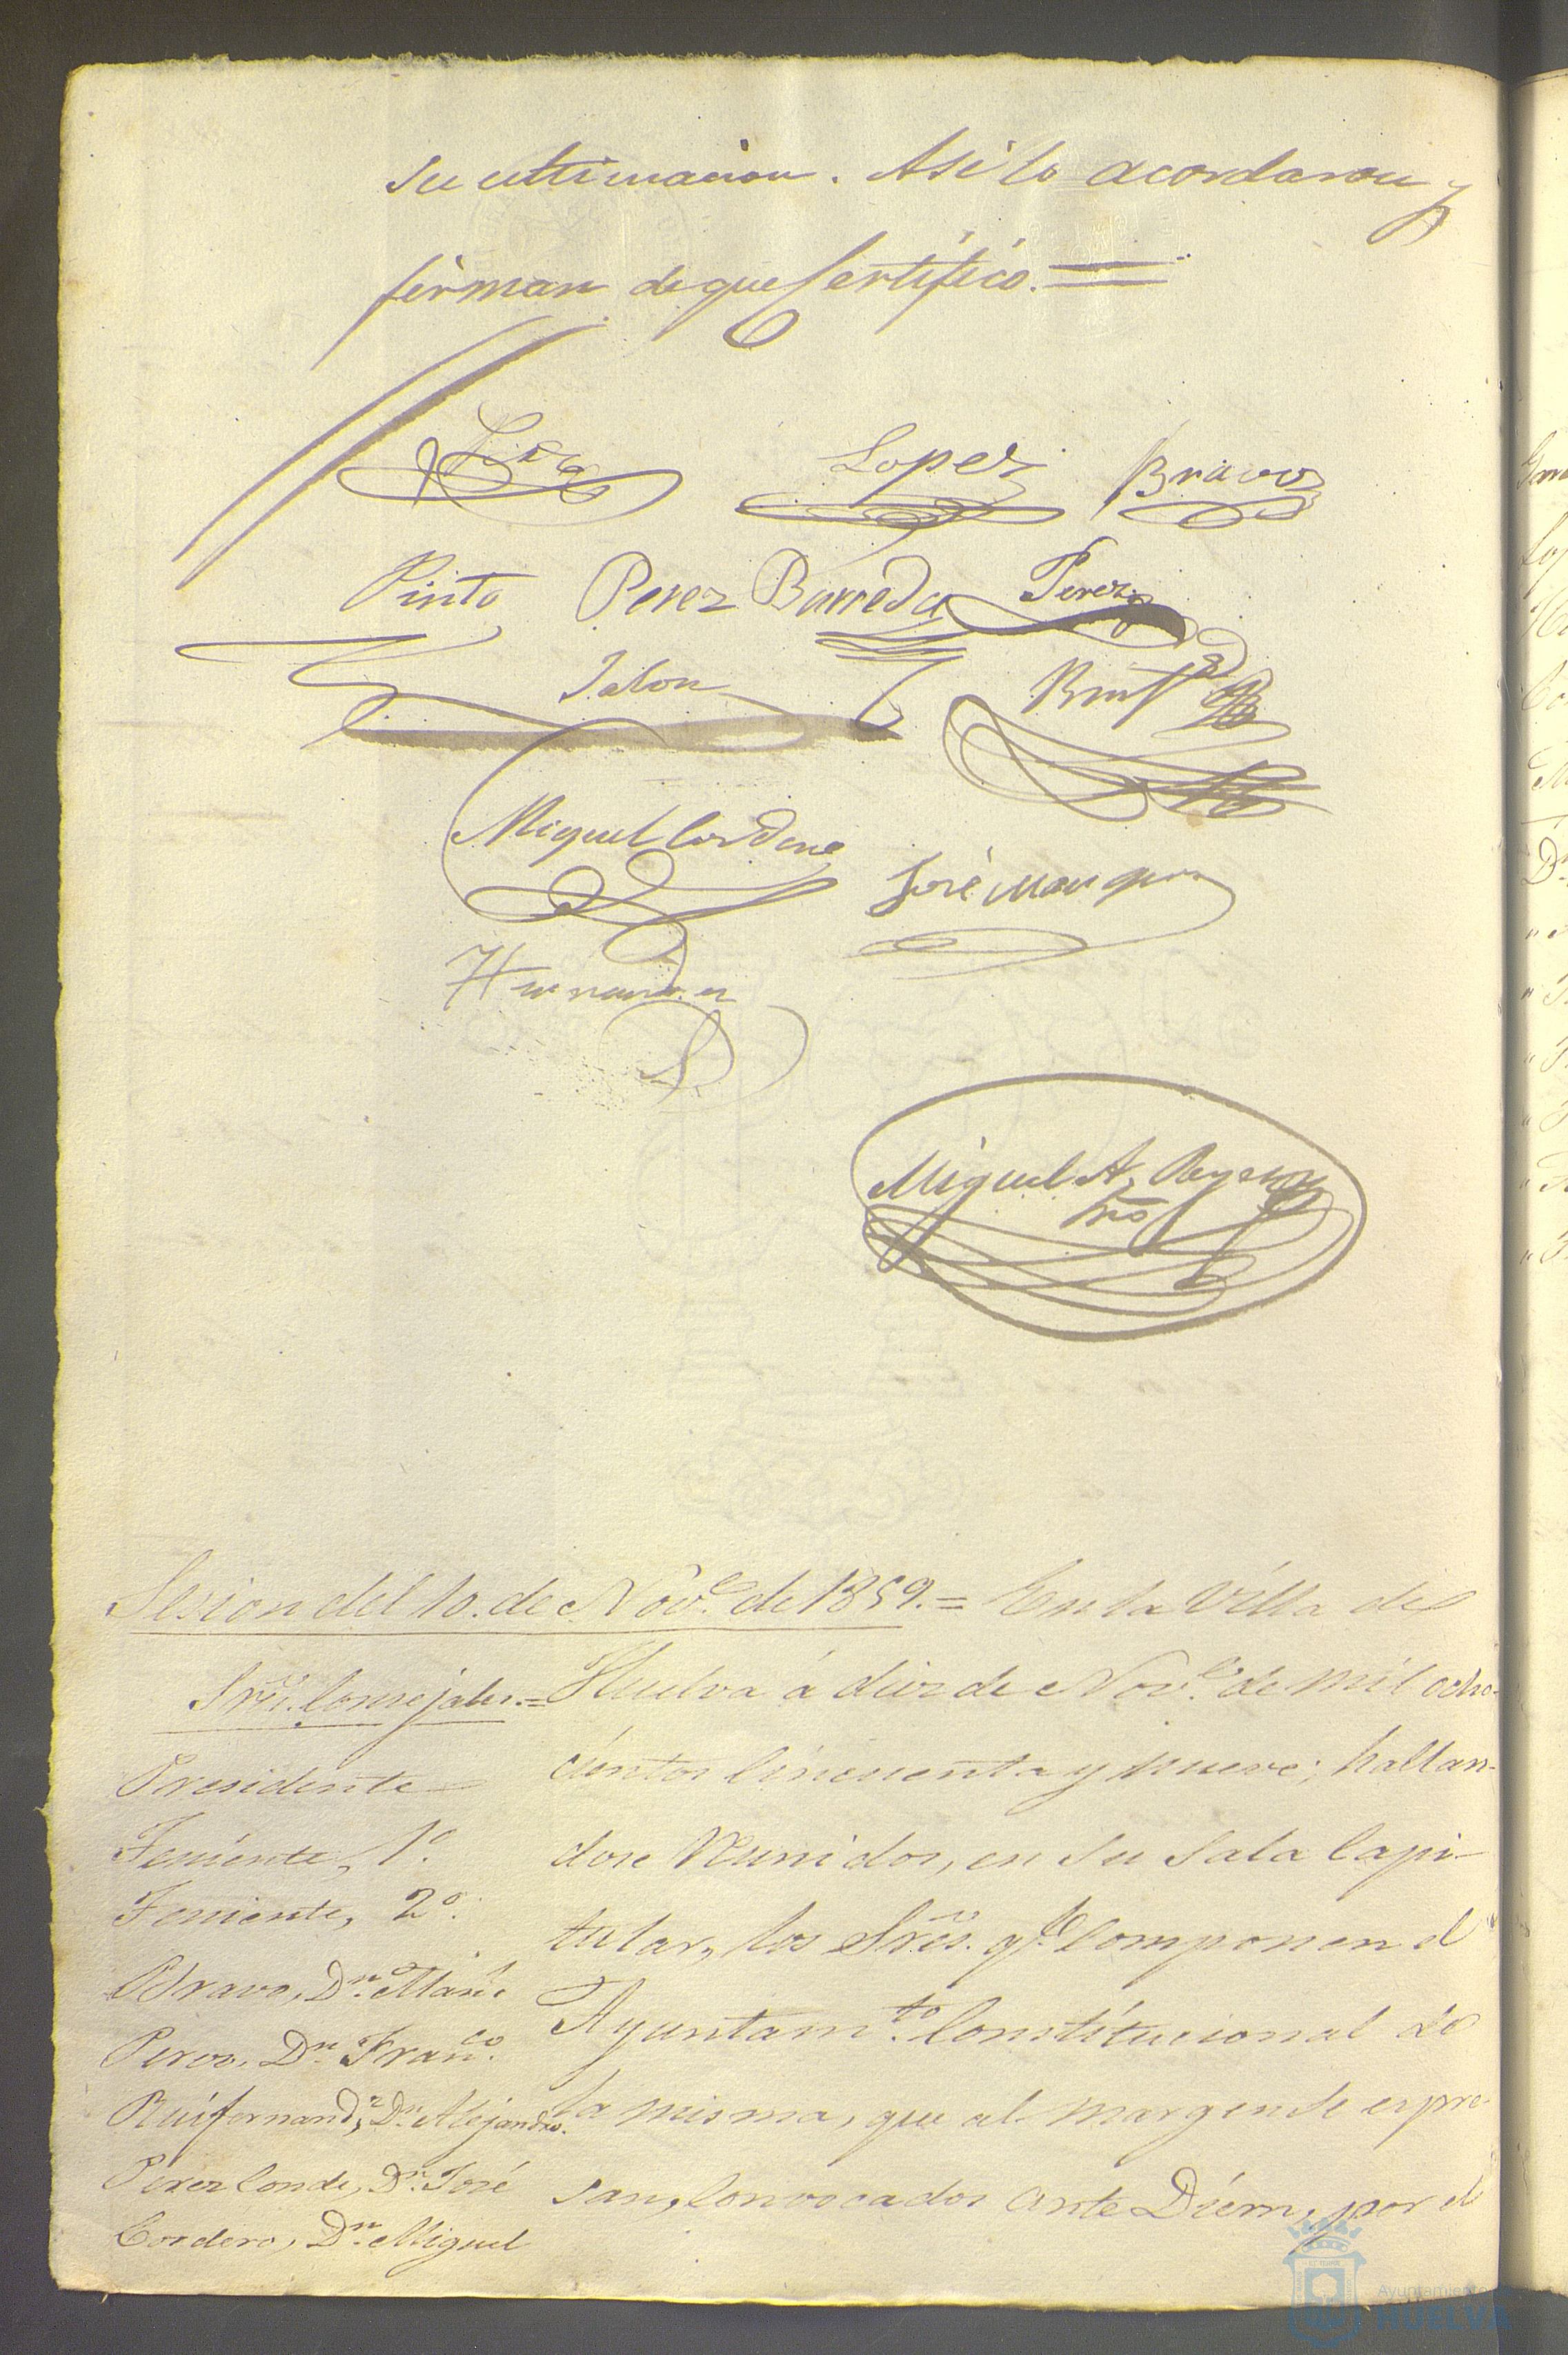 su ultimacion. Asi lo acordaron y
firman de que Certifico. =
Lopez Bravo
Pinto Perez Barreda Perez
Jalon
Miguel Cordero José
Hernandez
Miguel A.
Srio
Sesion del 10. de Nov.e de 1859. = En la Villa de
Sres. Consejales. =
Huelva á diez de Nov.e de mil ocho-
cientos Cincuenta y nueve; hallan-
dose Reunidos, en su Sala Capi-
tular, los Sres. q.e Componen el
Ayuntam.to Constitucional de
la misma, que al margen se expre-
san, Convocados ante Diém, por el
Presidente
Teniente, 1.o
Teniente, 2.o
Bravo, D.n
Perez, D.n Fran.co
Ruifernand.z, D.n Alejandro.
Perez Conde, D.n José
Cordero, D.n Miguel
Ayuntamiento
HUELVA